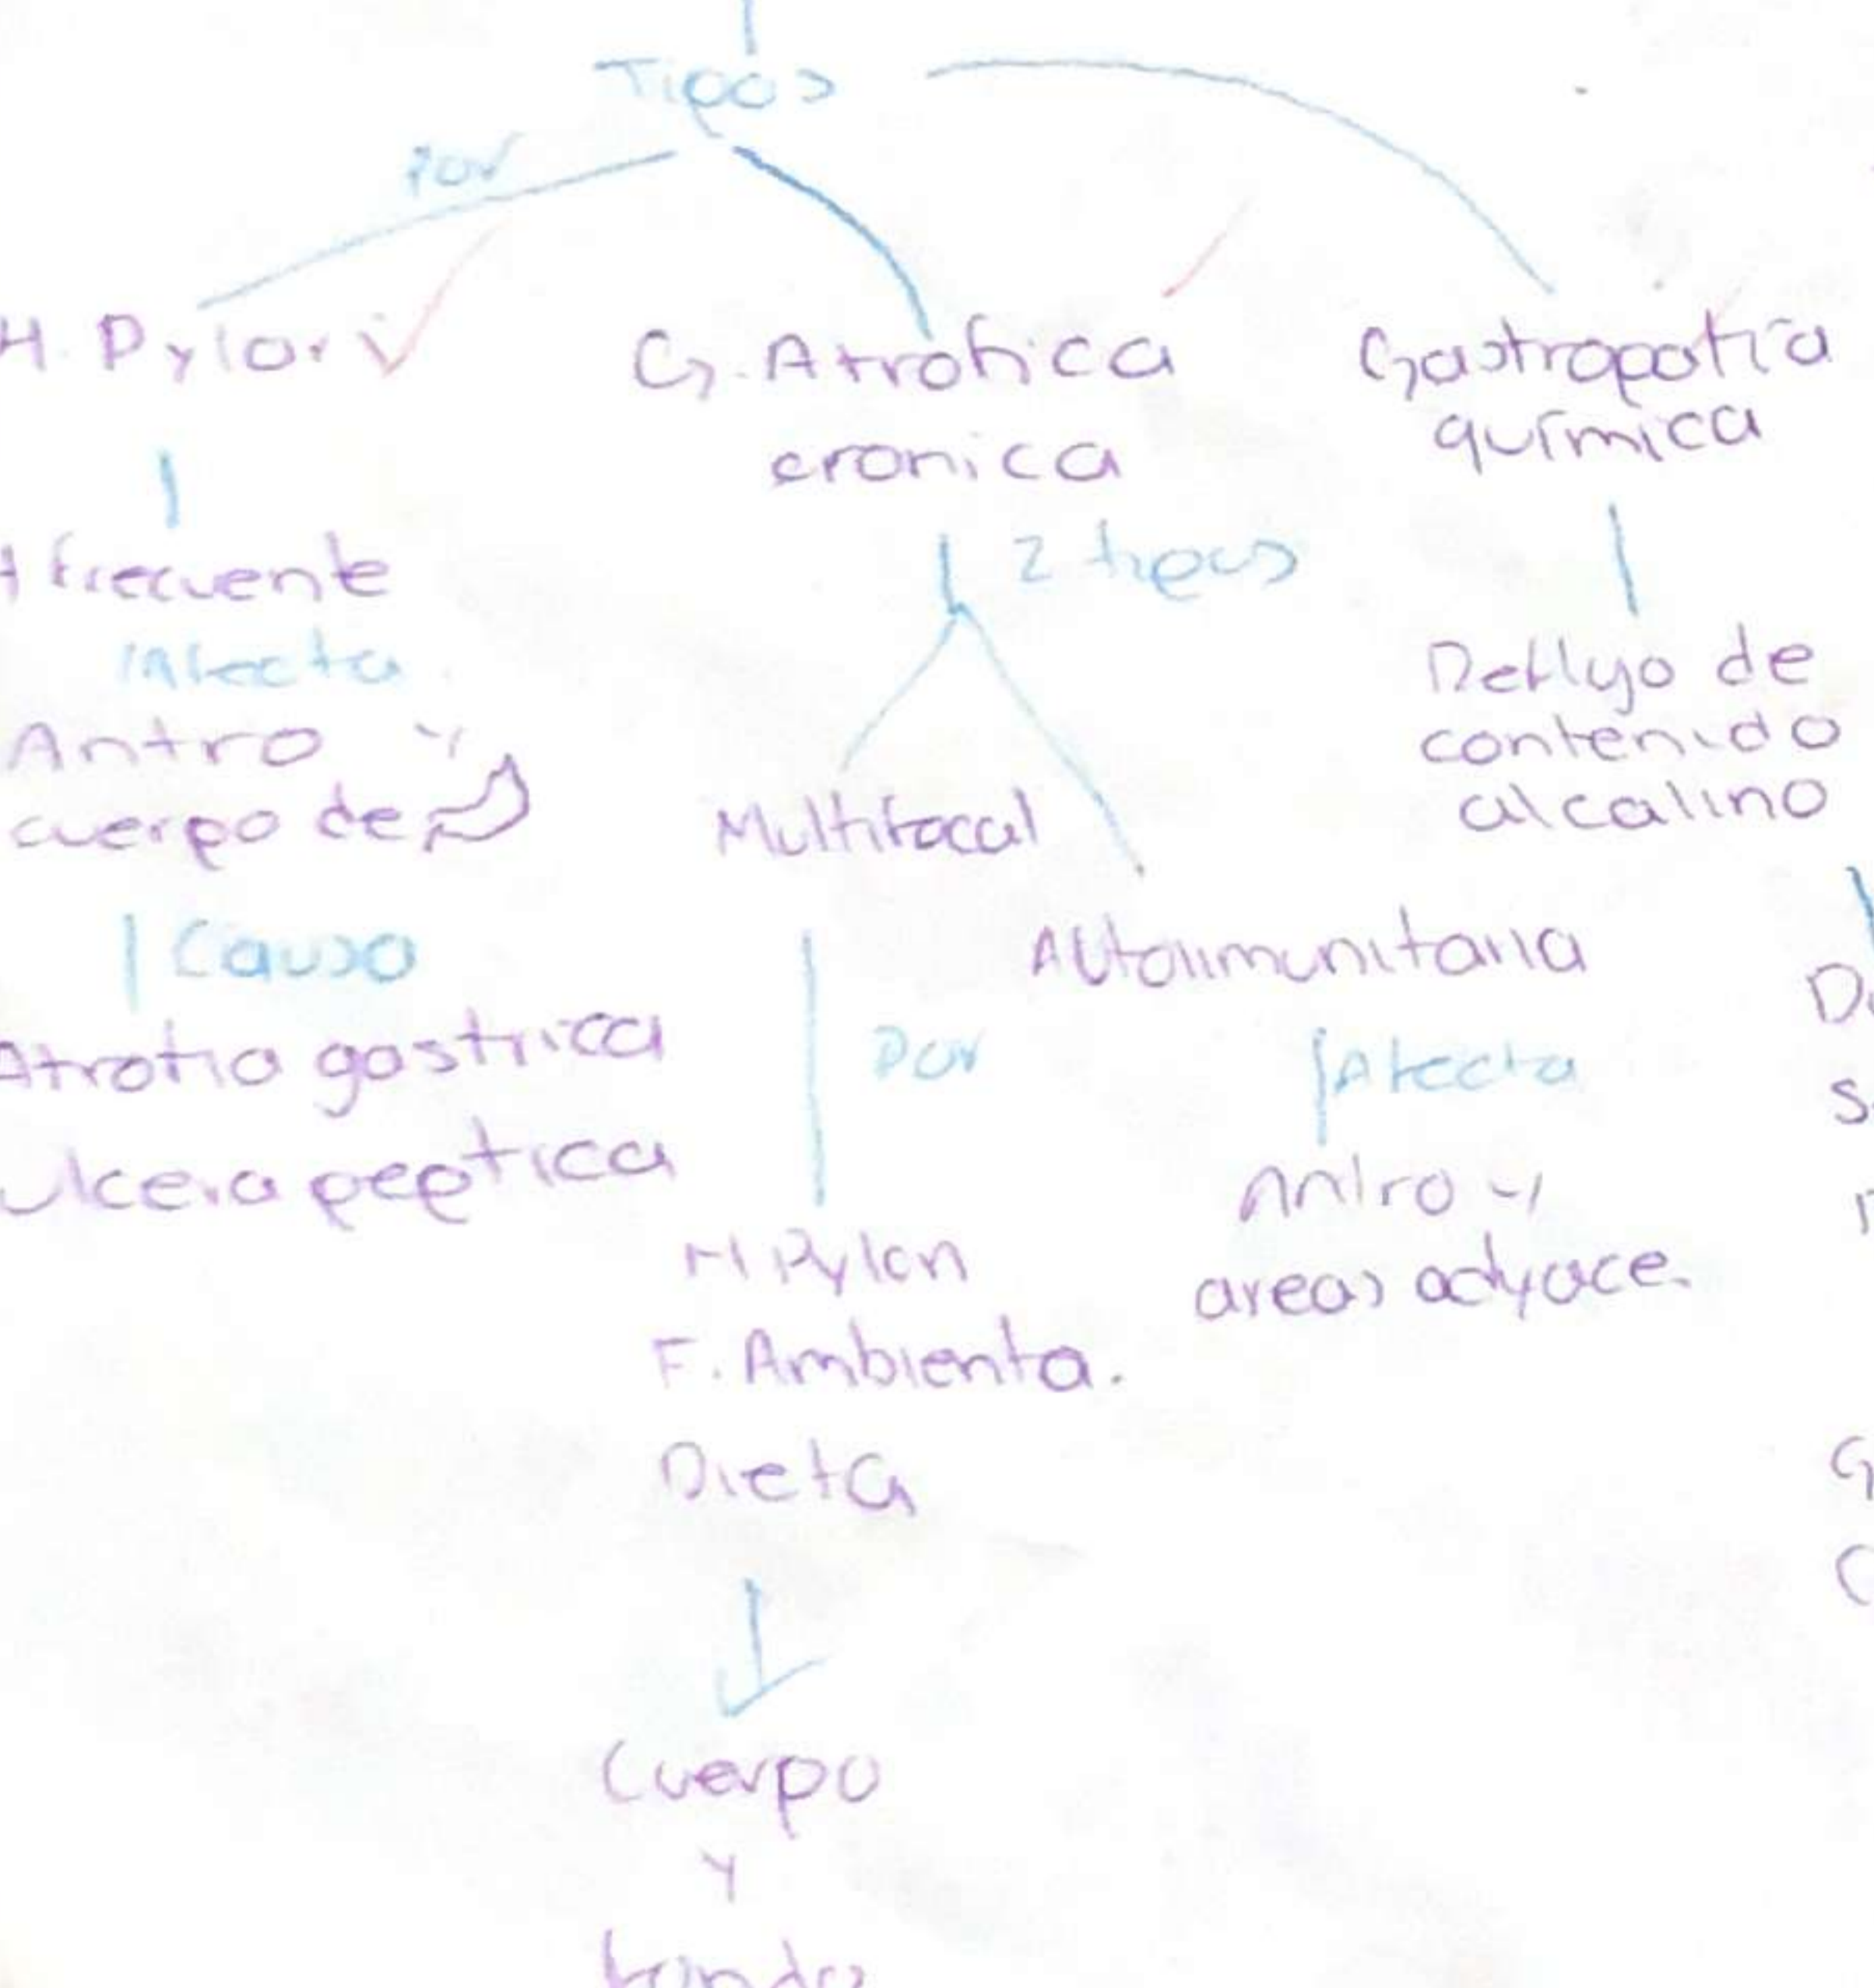 Tipos
Por
H. Pylori
+ frecuente
Infecta
Antro y
cuerpo de
Causa
Atrofia gastrica
Ulcera peptica
G. Atrofica
cronica
2 tipos
Multifocal
Por
H Pylori
F. Ambienta.
Dieta
Cuerpo
y
Autoimunitaria
Afecta
Antro y
areas adyace.
Gastropatía
química
Reflujo de
contenido
alcalino